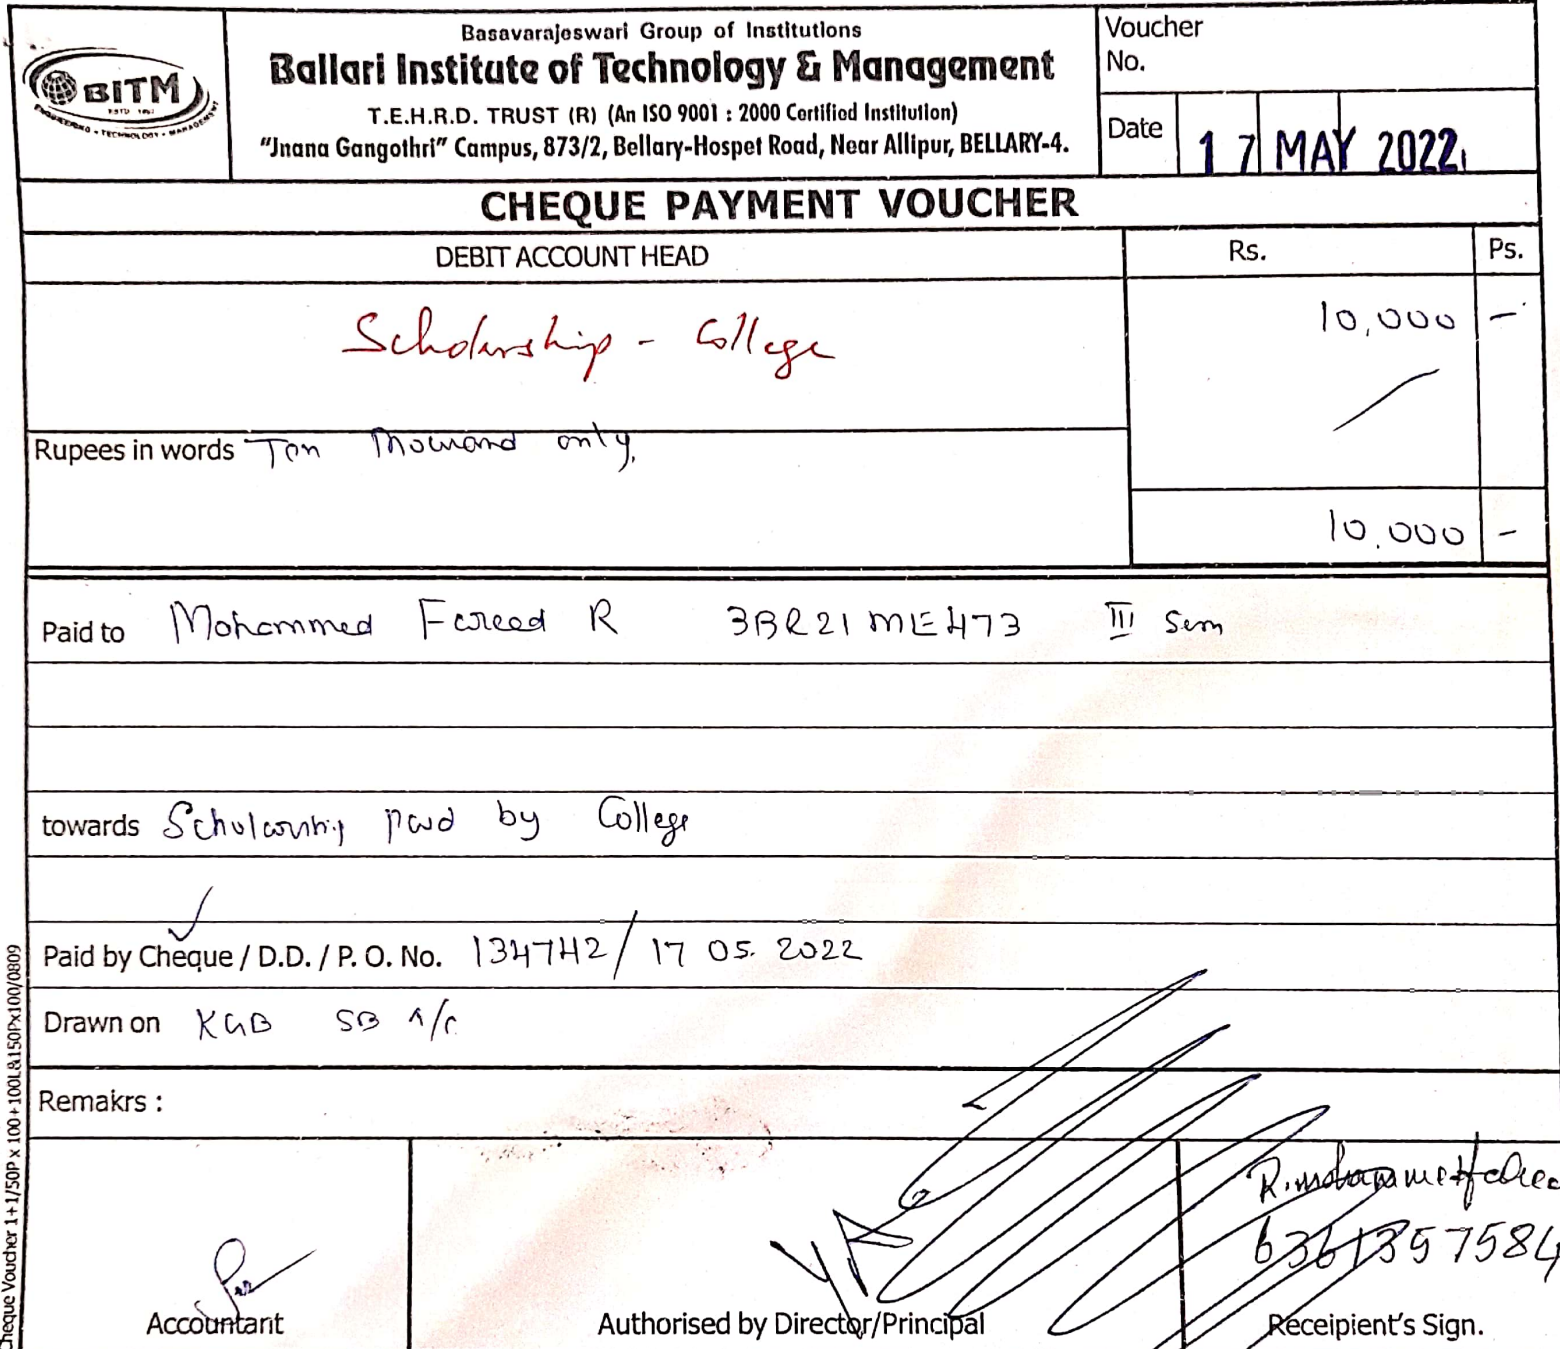 Basavarajeswari Group of Institutions
Ballari Institute of Technology & Management
T.E.H.R.D. TRUST (R) (An ISO 9001 : 2000 Certified Institution)
"Jnana Gangothri" Campus, 873/2, Bellary-Hospet Road, Near Allipur, BELLARY-4.
BITM
ESTD 1997
ENGINEERING - TECHNOLOGY - MANAGEMENT
Voucher
No.
Date 17 MAY 2022
CHEQUE PAYMENT VOUCHER
DEBIT ACCOUNT HEAD Rs. Ps.
Scholarship - College 10,000 -
Rupees in words Ten Thousand only.
10,000 -
Paid to Mohammed Fareed R 3BR21ME473 III Sem
towards Scholarship paid by College
Paid by Cheque / D.D. / P. O. No. 134742/ 17 05. 2022
Drawn on KGB SB A/c
Remakrs :
R. mohammed fareed
6361357584
Accountant Authorised by Director/Principal Receipient's Sign.
heque Voucher 1+1/50P x 100+100L&150Px100/0809